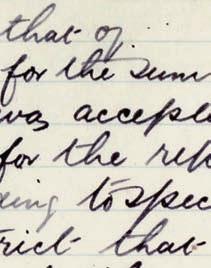 that of
for the sum
was accept
for the rep
ing to spec
rict that